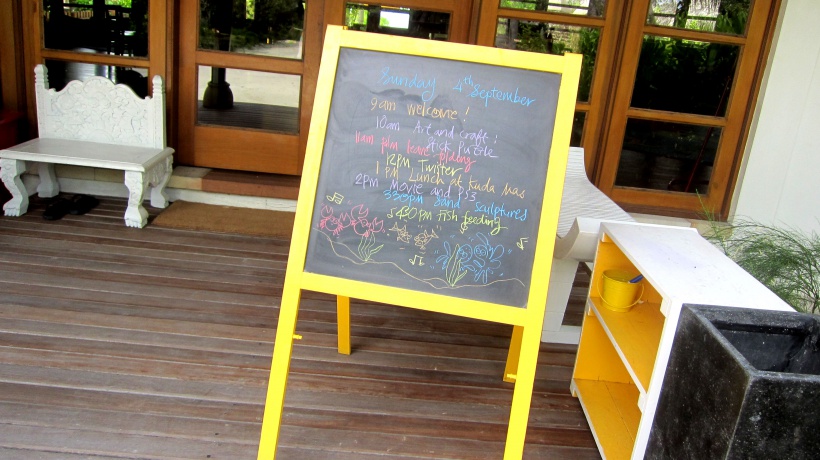 Sunday 4th September
9am welcome!
10am Art and craft:
Stick Puzzle
11am palm leave plaiting
12PM Twister
1PM Lunch at Kuda Mas
2PM Movie and PS3
330pm Sand sculptures
430PM Fish feeding